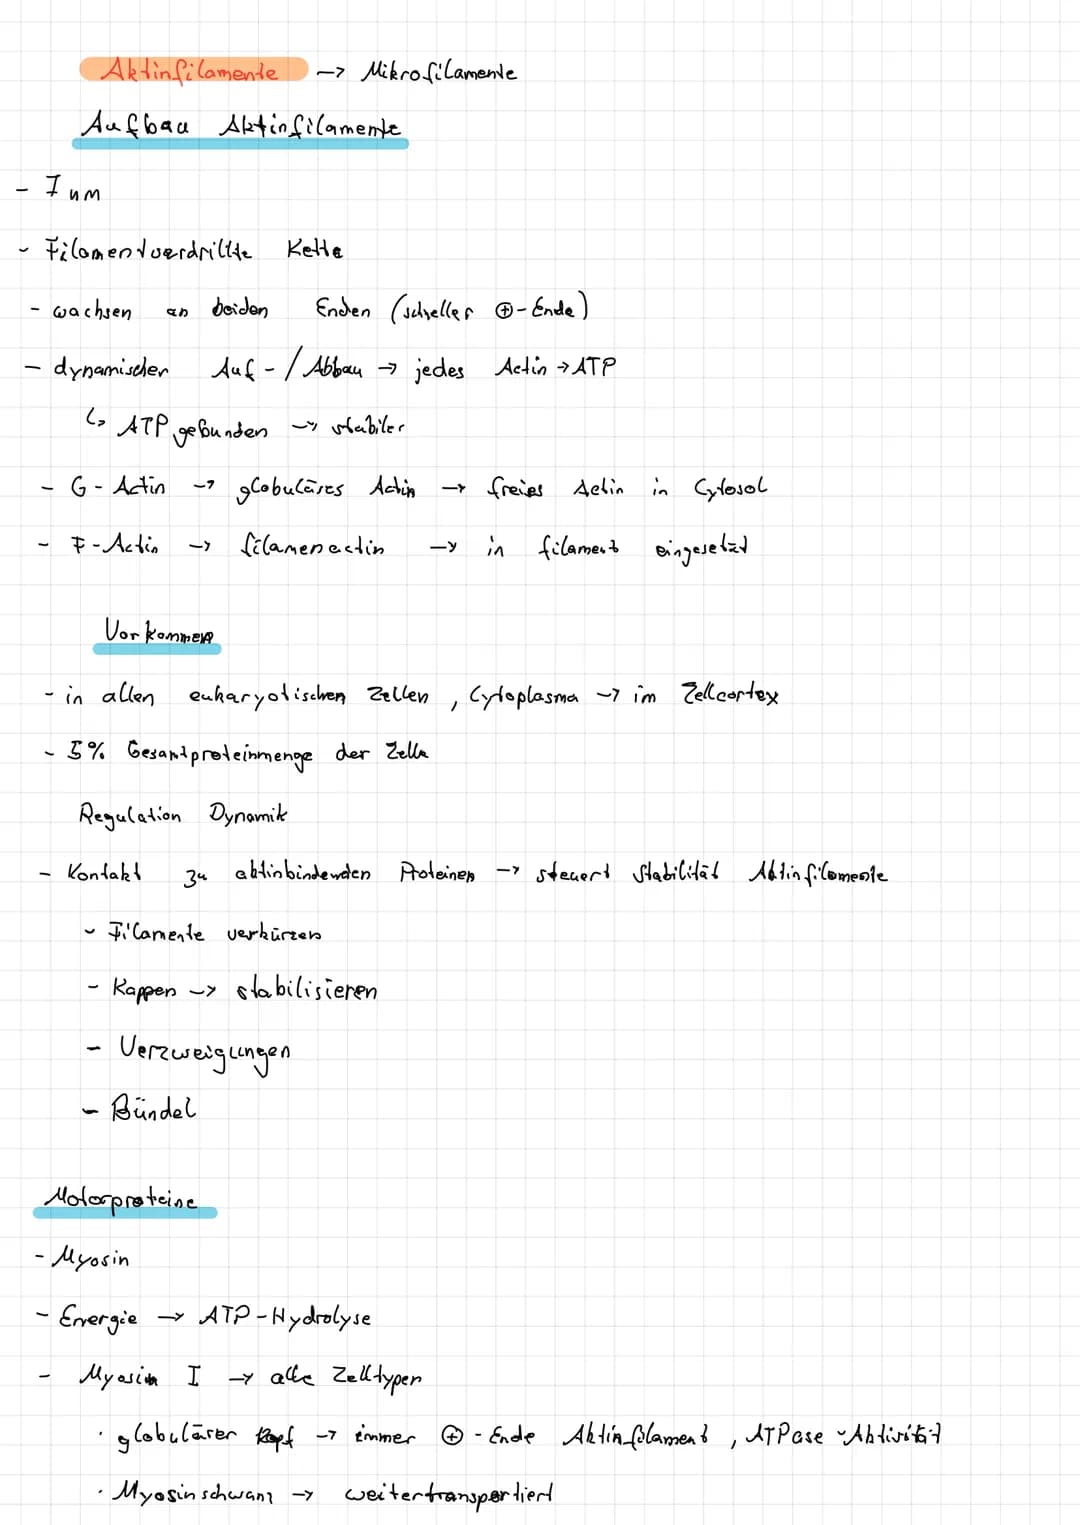 Aktinfilamente -> Mikrofilamente
Aufbau Aktinfilamente
- 7 nm
- Filamentverdrillte Kette
- wachsen an beiden Enden (scheller ⊕-Ende)
- dynamischer Auf-/Abbau → jedes Actin → ATP
↳ ATP gebunden → stabiler
- G-Actin → globuläres Actin → freies Actin in Cytosol
- F-Actin → filamenactin → in filament eingesetzt
Vorkommen
- in allen eukaryotischen Zellen, Cytoplasma → im Zellcortex
- 5% Gesamtproteinmenge der Zelle
Regulation Dynamik
- Kontakt zu aktinbindenden Proteinen → steuert Stabilität Aktinfilamente
- Filamente verkürzen
- Kappen → stabilisieren
- Verzweigungen
- Bündel
Motorproteine
- Myosin
- Energie → ATP-Hydrolyse
- Myosin I → alle Zelltypen
· globulärer Kopf → immer ⊕-Ende Aktinfilament, ATPase-Aktivität
· Myosinschwanz → weitertransportiert